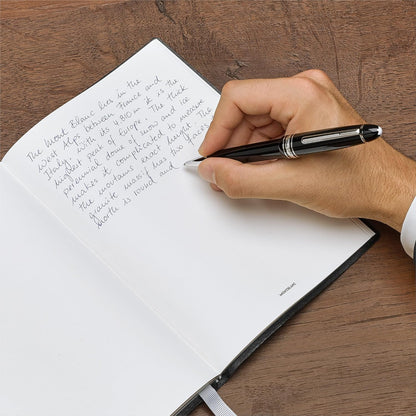 The Mont Blanc lies in the
West Alps between France and
Italy. With its 4.810m it is the
highest peak of Europe. The thick
perennial dome of snow and ice
makes it complicated to measure
the mountains exact height. The
granite massif has two faces.
North is round and
MONTBLANC